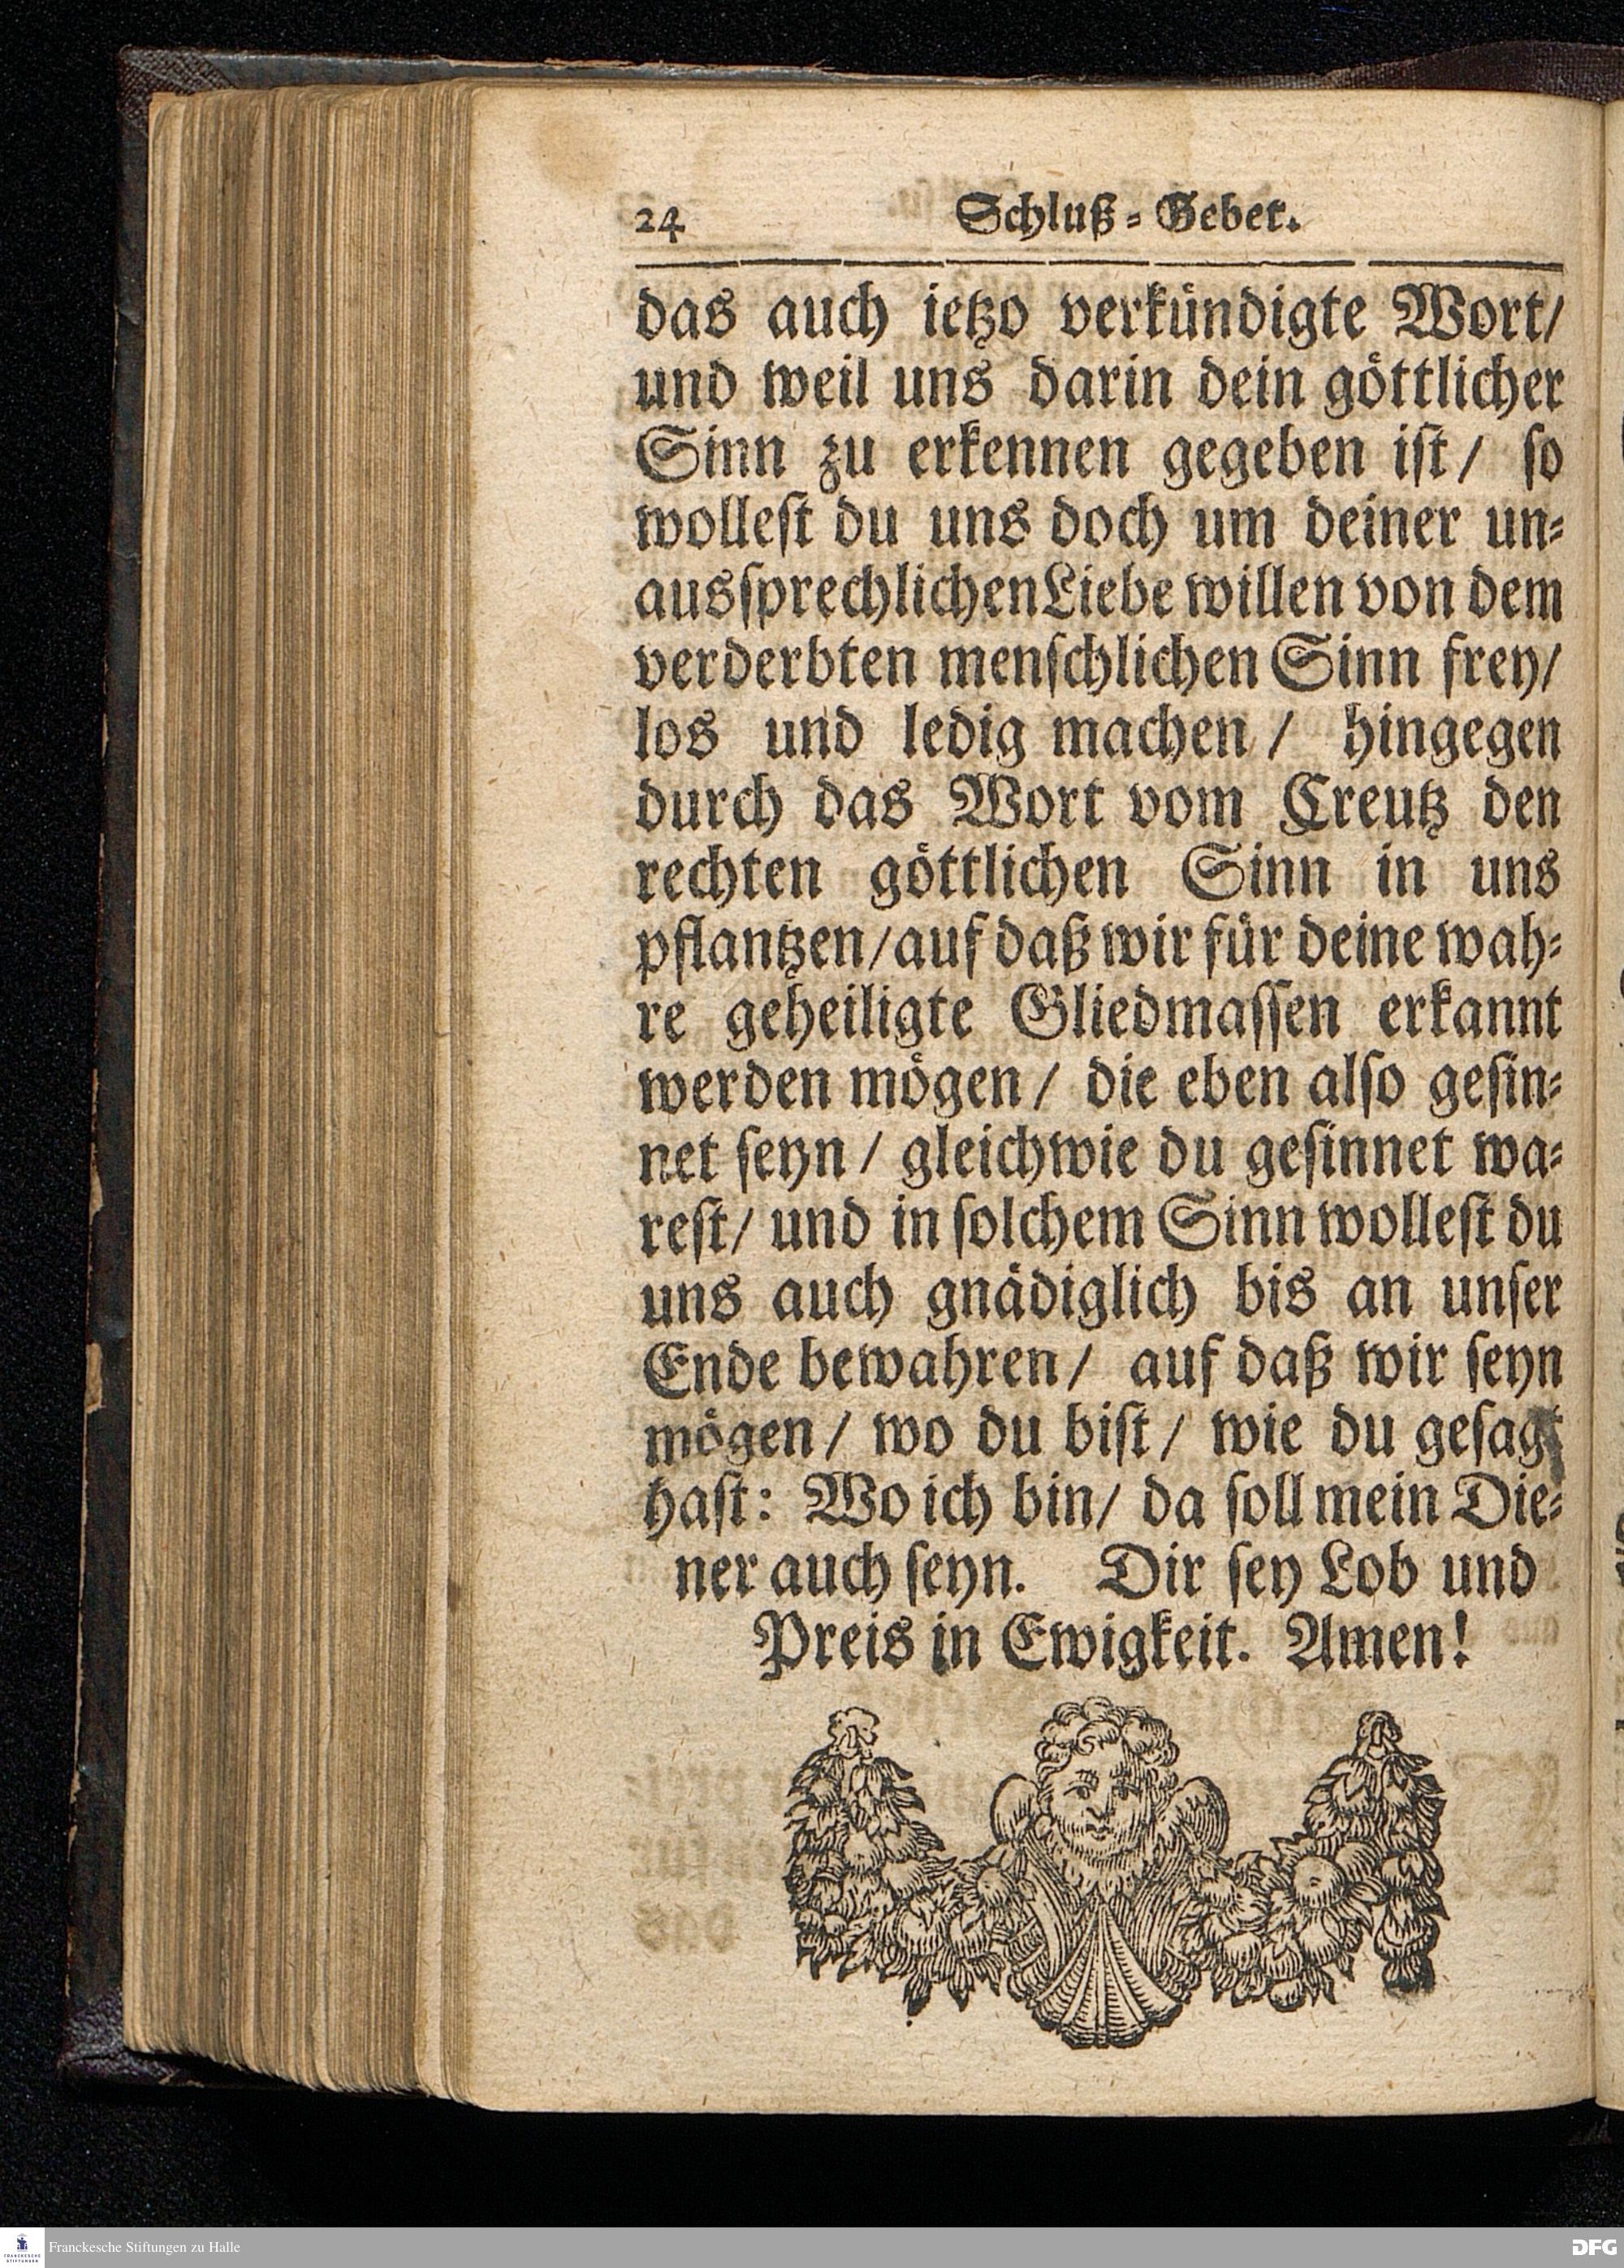 24 Schluß-Gebet.
das auch ietzo verkündigte Wort/
und weil uns darin dein göttlicher
Sinn zu erkennen gegeben ist/ so
wollest du uns doch um deiner un-
aussprechlichen Liebe willen von dem
verderbten menschlichen Sinn frey/
los und ledig machen/ hingegen
durch das Wort vom Creutz den
rechten göttlichen Sinn in uns
pflantzen/ auf daß wir für deine wah-
re geheiligte Gliedmassen erkannt
werden mögen/ die eben also gesin-
net seyn/ gleichwie du gesinnet wa-
rest/ und in solchem Sinn wollest du
uns auch gnädiglich bis an unser
Ende bewahren/ auf daß wir seyn
mögen/ wo du bist/ wie du gesagt
hast: Wo ich bin/ da soll mein Die-
ner auch seyn. Dir sey Lob und
Preis in Ewigkeit. Amen!
FRANCKESCHE STIFTUNGEN
Franckesche Stiftungen zu Halle
DFG